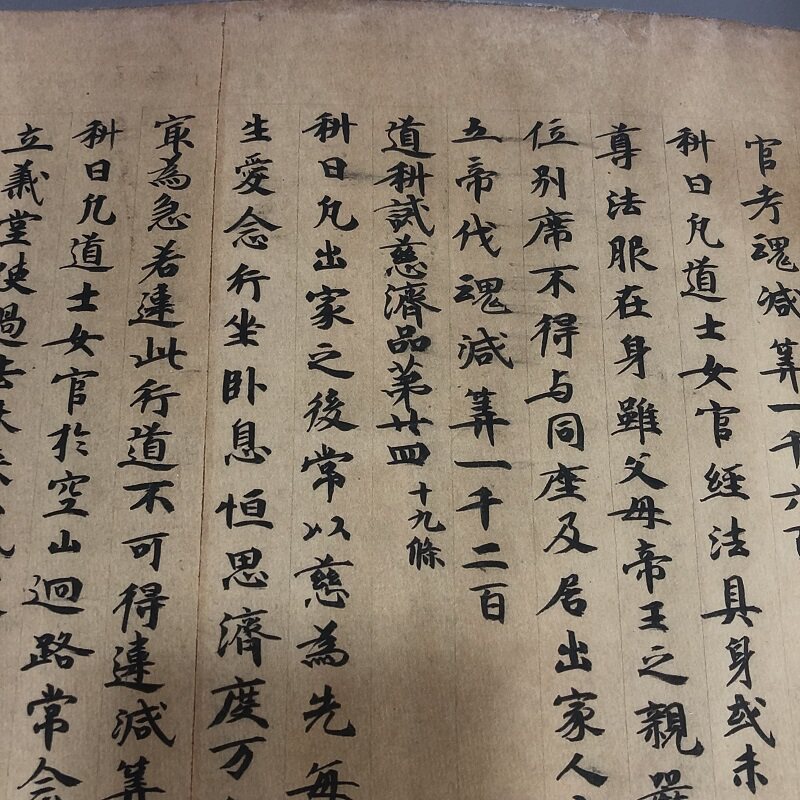 官考魂減筭一千六百
科曰凡道士女官經法具身或未
尊法服在身雖父母帝王之親
位別席不得与同座及居出家人
五帝伐魂減筭一千二百
道科試慈濟品第廿四 十九條
科曰凡出家之後常以慈為先每
生愛念行坐卧息恒思濟度万
㝡為急若違此行道不可得違減筭
科曰凡道士女官於空山迴路常念
立義堂使過去